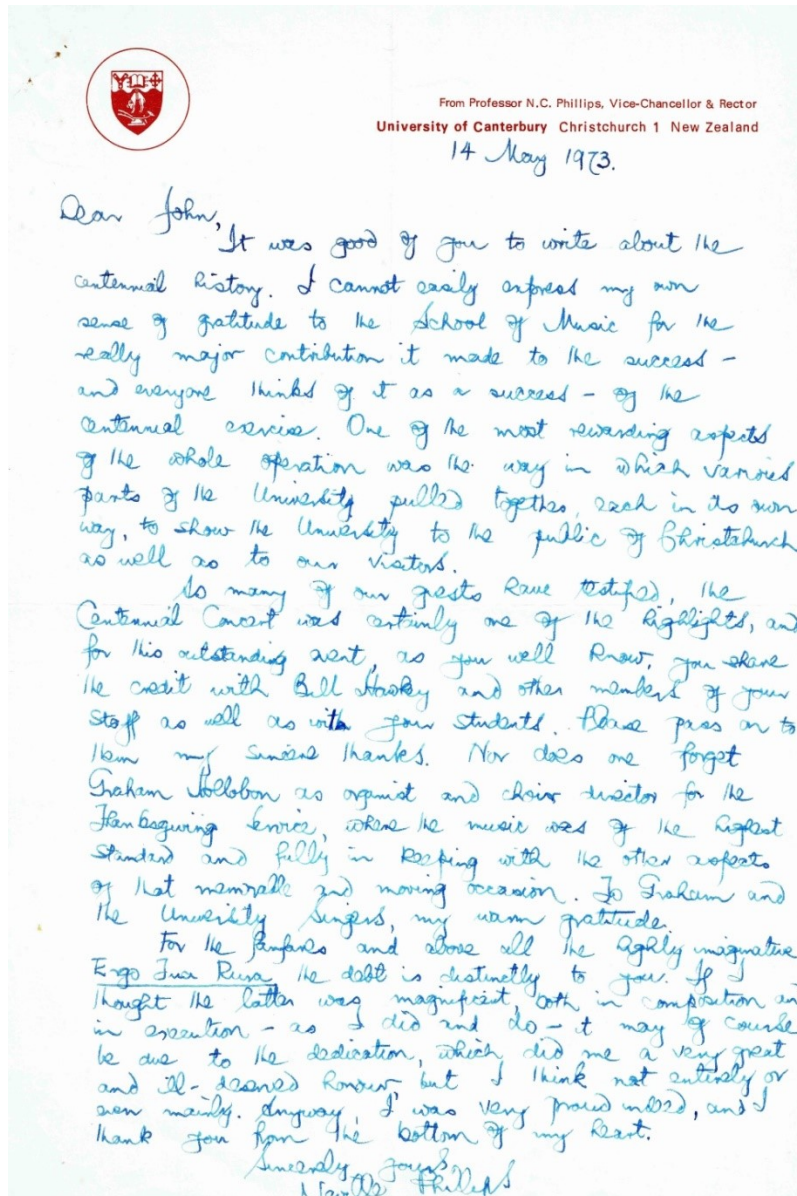 From Professor N.C. Phillips, Vice-Chancellor & Rector
University of Canterbury Christchurch 1 New Zealand
14 May 1973.
Dear John,
It was good of you to write about the
centennial history. I cannot easily express my own
sense of gratitude to the School of Music for the
really major contribution it made to the success -
and everyone thinks of it as a success - of the
centennial exercise. One of the most rewarding aspects
of the whole operation was the way in which various
parts of the University pulled together, each in its own
way, to show the University to the public of Christchurch
as well as to our visitors.
So many of our guests have testified, the
Centennial Concert was certainly one of the highlights, and
for this outstanding event, as you well know, you share
the credit with Bill Hawkey and other members of your
staff as well as with your students. Please pass on to
them my sincere thanks. Nor does one forget
Graham Hollobon as organist and choir director for the
Thanksgiving Service, where the music was of the highest
standard and fully in keeping with the other aspects
of that memorable and moving occasion. To Graham and
the University Singers, my warm gratitude.
For the fanfares and above all the highly imaginative
Ergo Tua Rura the debt is distinctly to you. If I
thought the latter was magnificent, both in composition an
in execution - as I did and do - it may of course
be due to the dedication, which did me a very great
and ill-deserved honour, but I think not entirely or
even mainly. Anyway, I was very proud indeed, and I
thank you from the bottom of my heart.
Sincerely yours
Neville Phillips